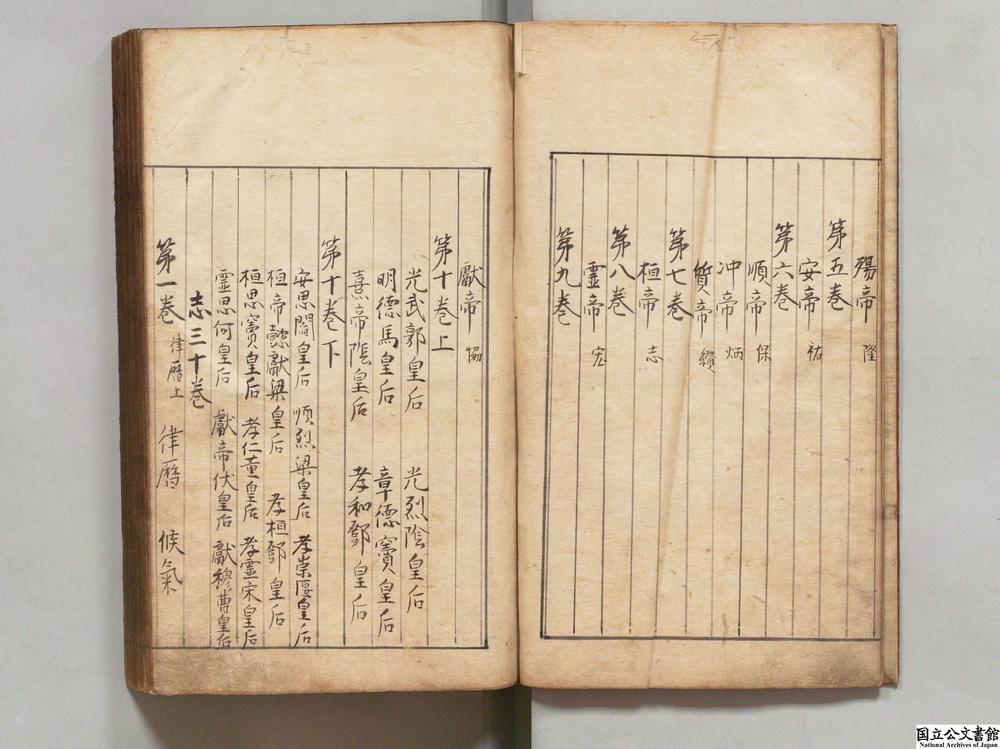 殤帝 隆
第五巻
安帝 祐
第六巻
順帝 保
冲帝 炳
質帝 纉
第七巻
桓帝 志
第八巻
霊帝 宏
第九巻
獻帝 協
第十巻上
光武郭皇后 光烈陰皇后
明德馬皇后 章德竇皇后
熹帝陰皇后 孝和鄧皇后
第十巻下
安思閻皇后 順烈梁皇后 孝崇匽皇后
桓帝懿獻梁皇后 孝桓鄧皇后
桓思竇皇后 孝仁董皇后 孝霊宋皇后
靈思何皇后 獻帝伏皇后 獻穆曹皇后
志三十巻
第一巻 律曆上 律曆 候氣
国立公文書館
National Archives of Japan